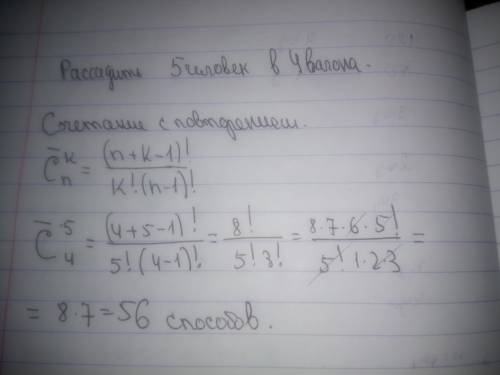 Рассадить 5 человек в 4 вагона.
Сочетание с повторением.
C̄ₙᵏ = (n+k-1)! / k!(n-1)!
C̄₄⁵ = (4+5-1)! / 5!(4-1)! = 8! / 5!3! = 8·7·6·5! / 5!·1·2·3 =
= 8·7=56 способов.